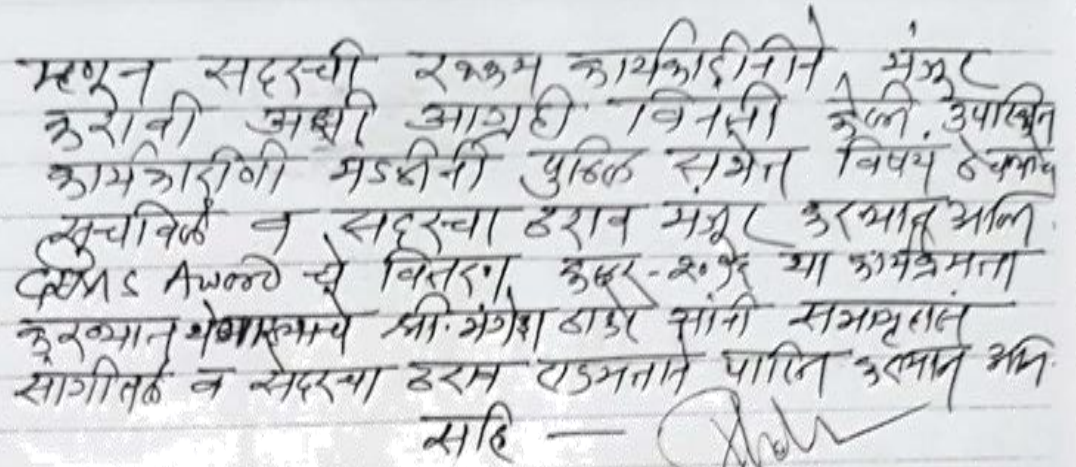 म्हणून सदरची रक्कम कार्यकारीनीने मंजूर
करावी अशी आग्रही विनंती केली. उपस्थित
कार्यकारीणी मंडळीनी पुढिल सभेत विषय ठेवणेचे
सुचविले व सदरचा ठराव मंजूर करण्यात आले.
GEMS Award चे वितरण या कार्यक्रमात
करण्यात येणारअसल्याचे श्री. मंगेश ठाकरे यांनी सभागृहात
सांगीतले व सदरचा ठराव एकमताने पारित करण्यात आले.
सहि —